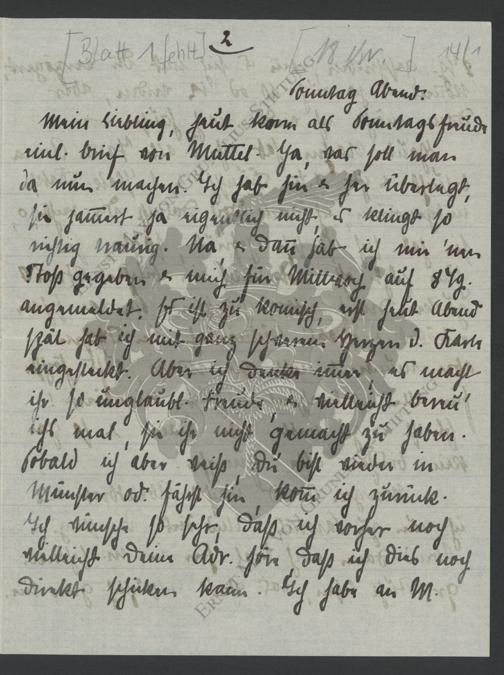 [Blatt 1 fehlt] 2 [18 Uhr] 14/1
Sonntag Abend.
Mein Liebling, heut kam als Sonntagsfreude
einl. Brief von Muttel. Ja, was soll man
da nun machen. Ich hab hin & her überlegt,
sie jammert ja eigentlich nicht, es klingt so
richtig traurig. Na, & dann hab ich mir 'nen
Stoß gegeben & mich für Mittwoch auf 8 Tg.
angemeldet. Es ist zu komisch, erst heut Abend
spät hab ich mit ganz schwerem Herzen d. Karte
eingesteckt. Aber ich denke immer, es macht
ihr so unglaubl. Freude, & vielleicht bereu'
ichs mal, sie ihr nicht gemacht zu haben.
Sobald ich aber weiß, du bist wieder in
Münster od. fährst hin, komm ich zurück.
Ich wünsche so sehr, daß ich vorher noch
vielleicht Deine Adr. höre, daß ich dies noch
direkt schicken kann. Ich habe an M.